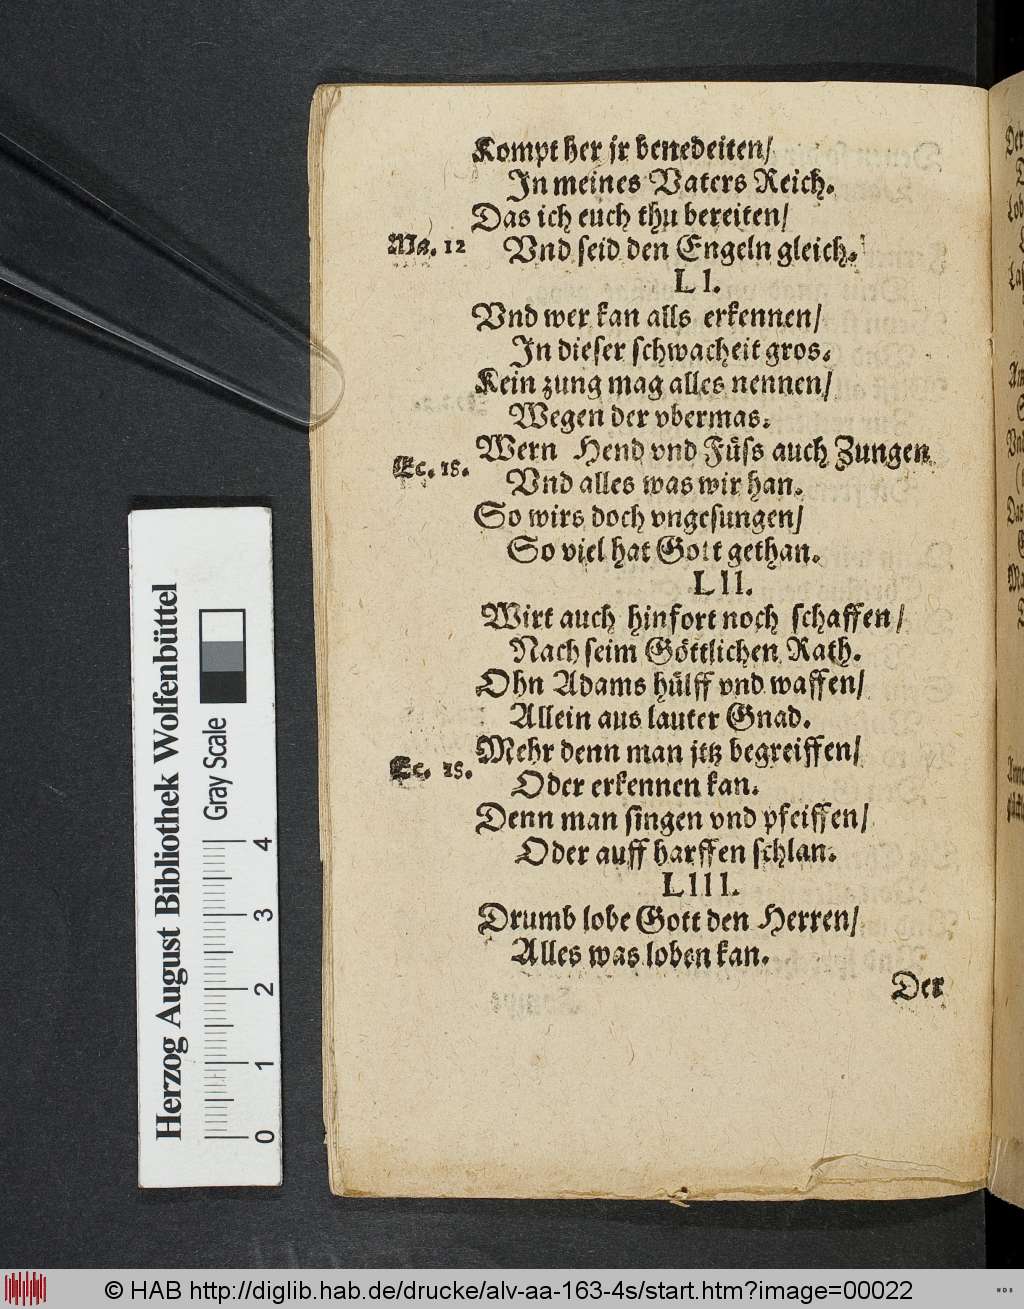 Kompt her jr benedeiten/
In meines Vaters Reich.
Das ich euch thu bereiten/
Ma. 12
Vnd seid den Engeln gleich.
LI.
Vnd wer kan alls erkennen/
In dieser schwacheit gros.
Kein zung mag alles nennen/
Wegen der vbermas.
Wern Hend vnd Füss auch Zungen
Ec. 18.
Vnd alles was wir han.
So wirs doch vngesungen/
So viel hat Gott gethan.
LII.
Wirt auch hinfort noch schaffen/
Nach seim Göttlichen Rath.
Ohn Adams hülff vnd waffen/
Allein aus lauter Gnad.
Mehr denn man jtz begreiffen/
Ec. 18.
Oder erkennen kan.
Denn man singen vnd pfeiffen/
Oder auff harffen schlan.
LIII.
Drumb lobe Gott den Herren/
Alles was loben kan.
Der
Herzog August Bibliothek Wolfenbüttel
Gray Scale
0 1 2 3 4
© HAB http://diglib.hab.de/drucke/alv-aa-163-4s/start.htm?image=00022